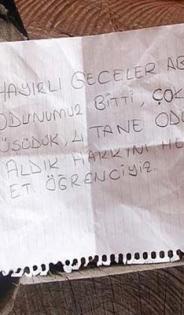 HAYIRLI GECELER AB
ODUNUMUZ BİTTİ, ÇOK
ÜŞÜDÜK, 4 TANE ODU
ALDIK HAKKINI HE
ET ÖĞRENCİYİZ.